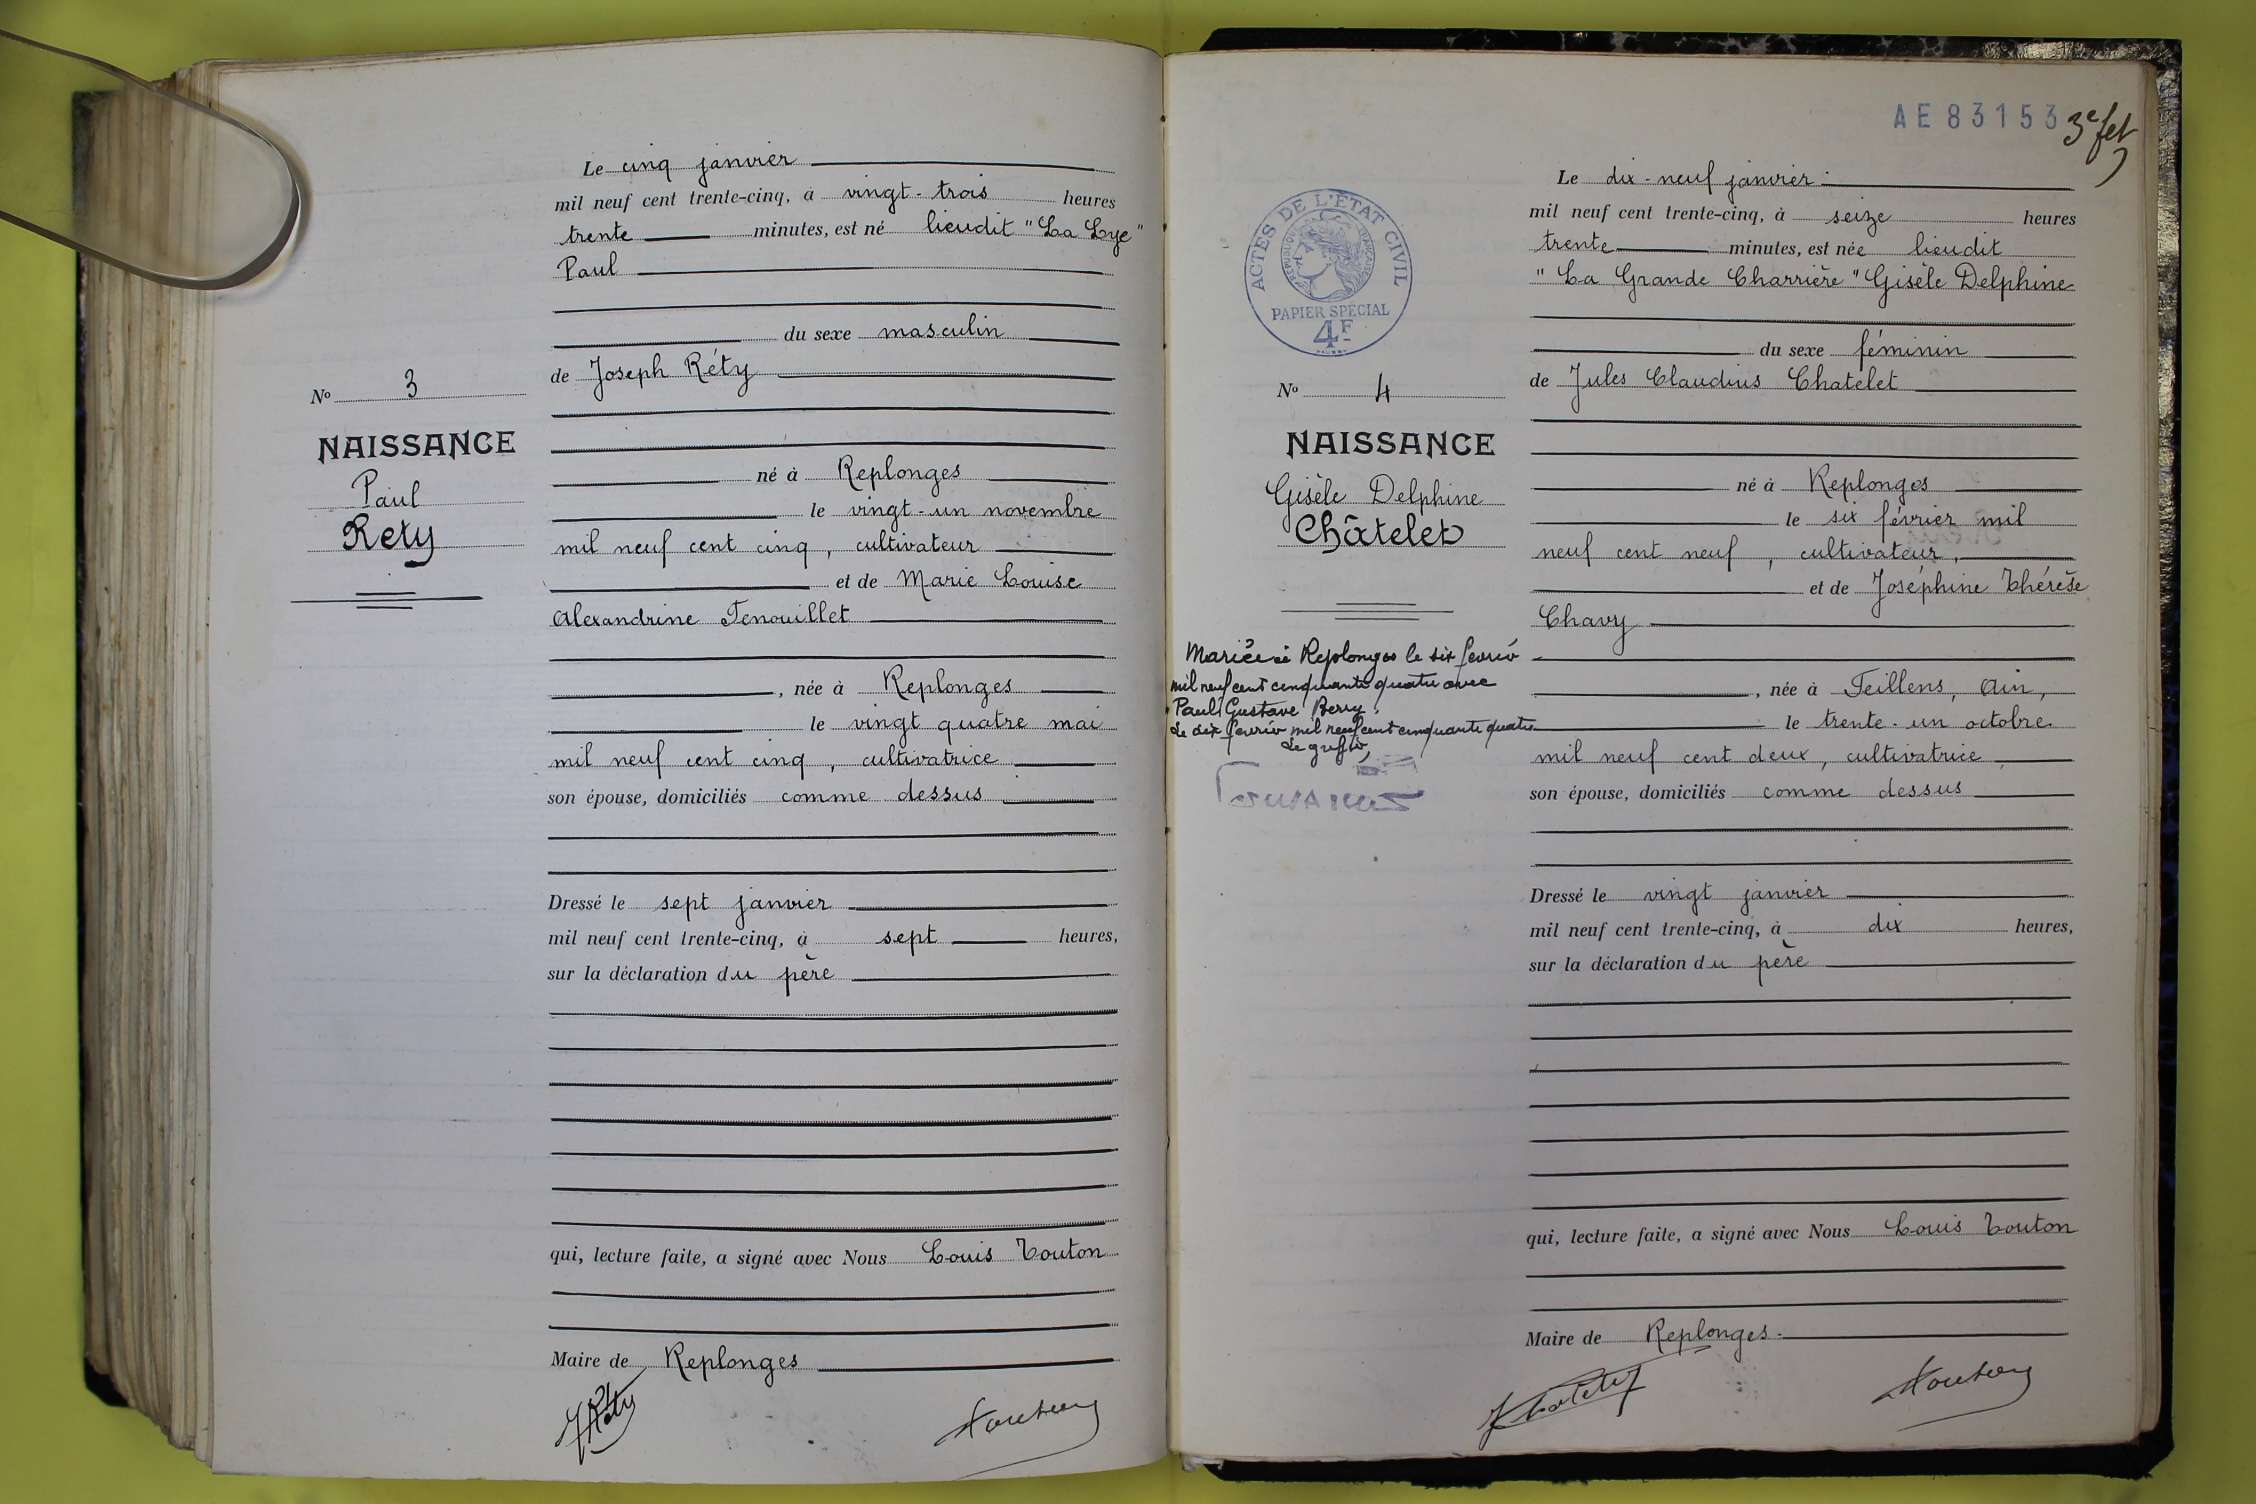 Le cinq janvier
mil neuf cent trente-cinq, à vingt-trois heures
trente minutes, est né lieudit "La Lye"
Paul
du sexe masculin
de Joseph Réty
No 3
NAISSANCE
Paul
Rety
né à Replonges
le vingt-un novembre
mil neuf cent cinq, cultivateur
et de Marie Louise
Alexandrine Fenouillet
, née à Replonges
le vingt quatre mai
mil neuf cent cinq, cultivatrice
son épouse, domiciliés comme dessus
Dressé le sept janvier
mil neuf cent trente-cinq, à sept heures,
sur la déclaration du père
qui, lecture faite, a signé avec Nous Louis Touton
Maire de Replonges
JRéty
Touton
AE 83153
3e fet
ACTES DE L'ETAT CIVIL
PAPIER SPÉCIAL
4F
Le dix-neuf janvier
mil neuf cent trente-cinq, à seize heures
trente minutes, est née lieudit
"La Grande Charrière" Gisèle Delphine
du sexe féminin
de Jules Claudius Chatelet
No 4
NAISSANCE
Gisèle Delphine
Châtelet
Mariée à Replonges le six février
mil neuf cent cinquante quatre avec
Paul Gustave Berry.
Le dix février mil neuf cent cinquante quatre
Le greffier,
né à Replonges
le six février mil
neuf cent neuf, cultivateur,
et de Joséphine Thérèse
Chavy
, née à Feillens, Ain,
le trente-un octobre
mil neuf cent deux, cultivatrice
son épouse, domiciliés comme dessus
Dressé le vingt janvier
mil neuf cent trente-cinq, à dix heures,
sur la déclaration du père
qui, lecture faite, a signé avec Nous Louis Touton
Maire de Replonges
JChatelet
Touton